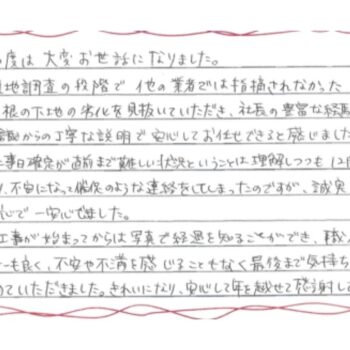 度は 大変お世話になりました。
地調査の段階で 他の業者では指摘されなかった
根の下地の劣化を見抜いていただき、社長の豊富な経
からの丁寧な説明で 安心してお任せできると感じました
事日確定が直前まで難しい状況ということは理解しつつも 12
、不安になって催促のような連絡をしてしまったのですが、誠実
心で 一安心でました。
工事が始まってからは写真で経過を知ることができ、職
も良く、不安や不満を感じることもなく 最後まで気持ち
ていただきました。きれいになり、安心して年を越せて感謝して